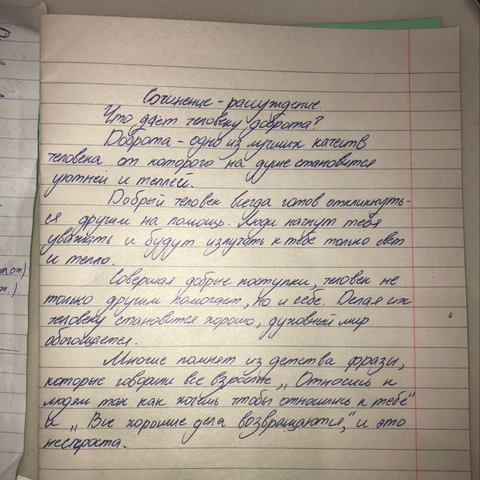 Сочинение - рассуждение.
Что даёт человеку доброта?
Доброта - одно из лучших качеств
человека от которого на душе становится
уютней и теплей.
Добрый человек всегда готов откликнуть-
ся другим на помощь. Люди начнут тебя
уважать и будут излучать к тебе только свет
и тепло.
Совершая добрые поступки, человек не
только другим помогает, но и себе. Делая их
человеку становится хорошо, духовный мир
обогощается.
Многие помнят из детства фразы,
которые говорили все взрослые „Относись к
людям так как хочешь чтобы относились к тебе"
и „Все хорошие дела возвращаются," и это
неспроста.